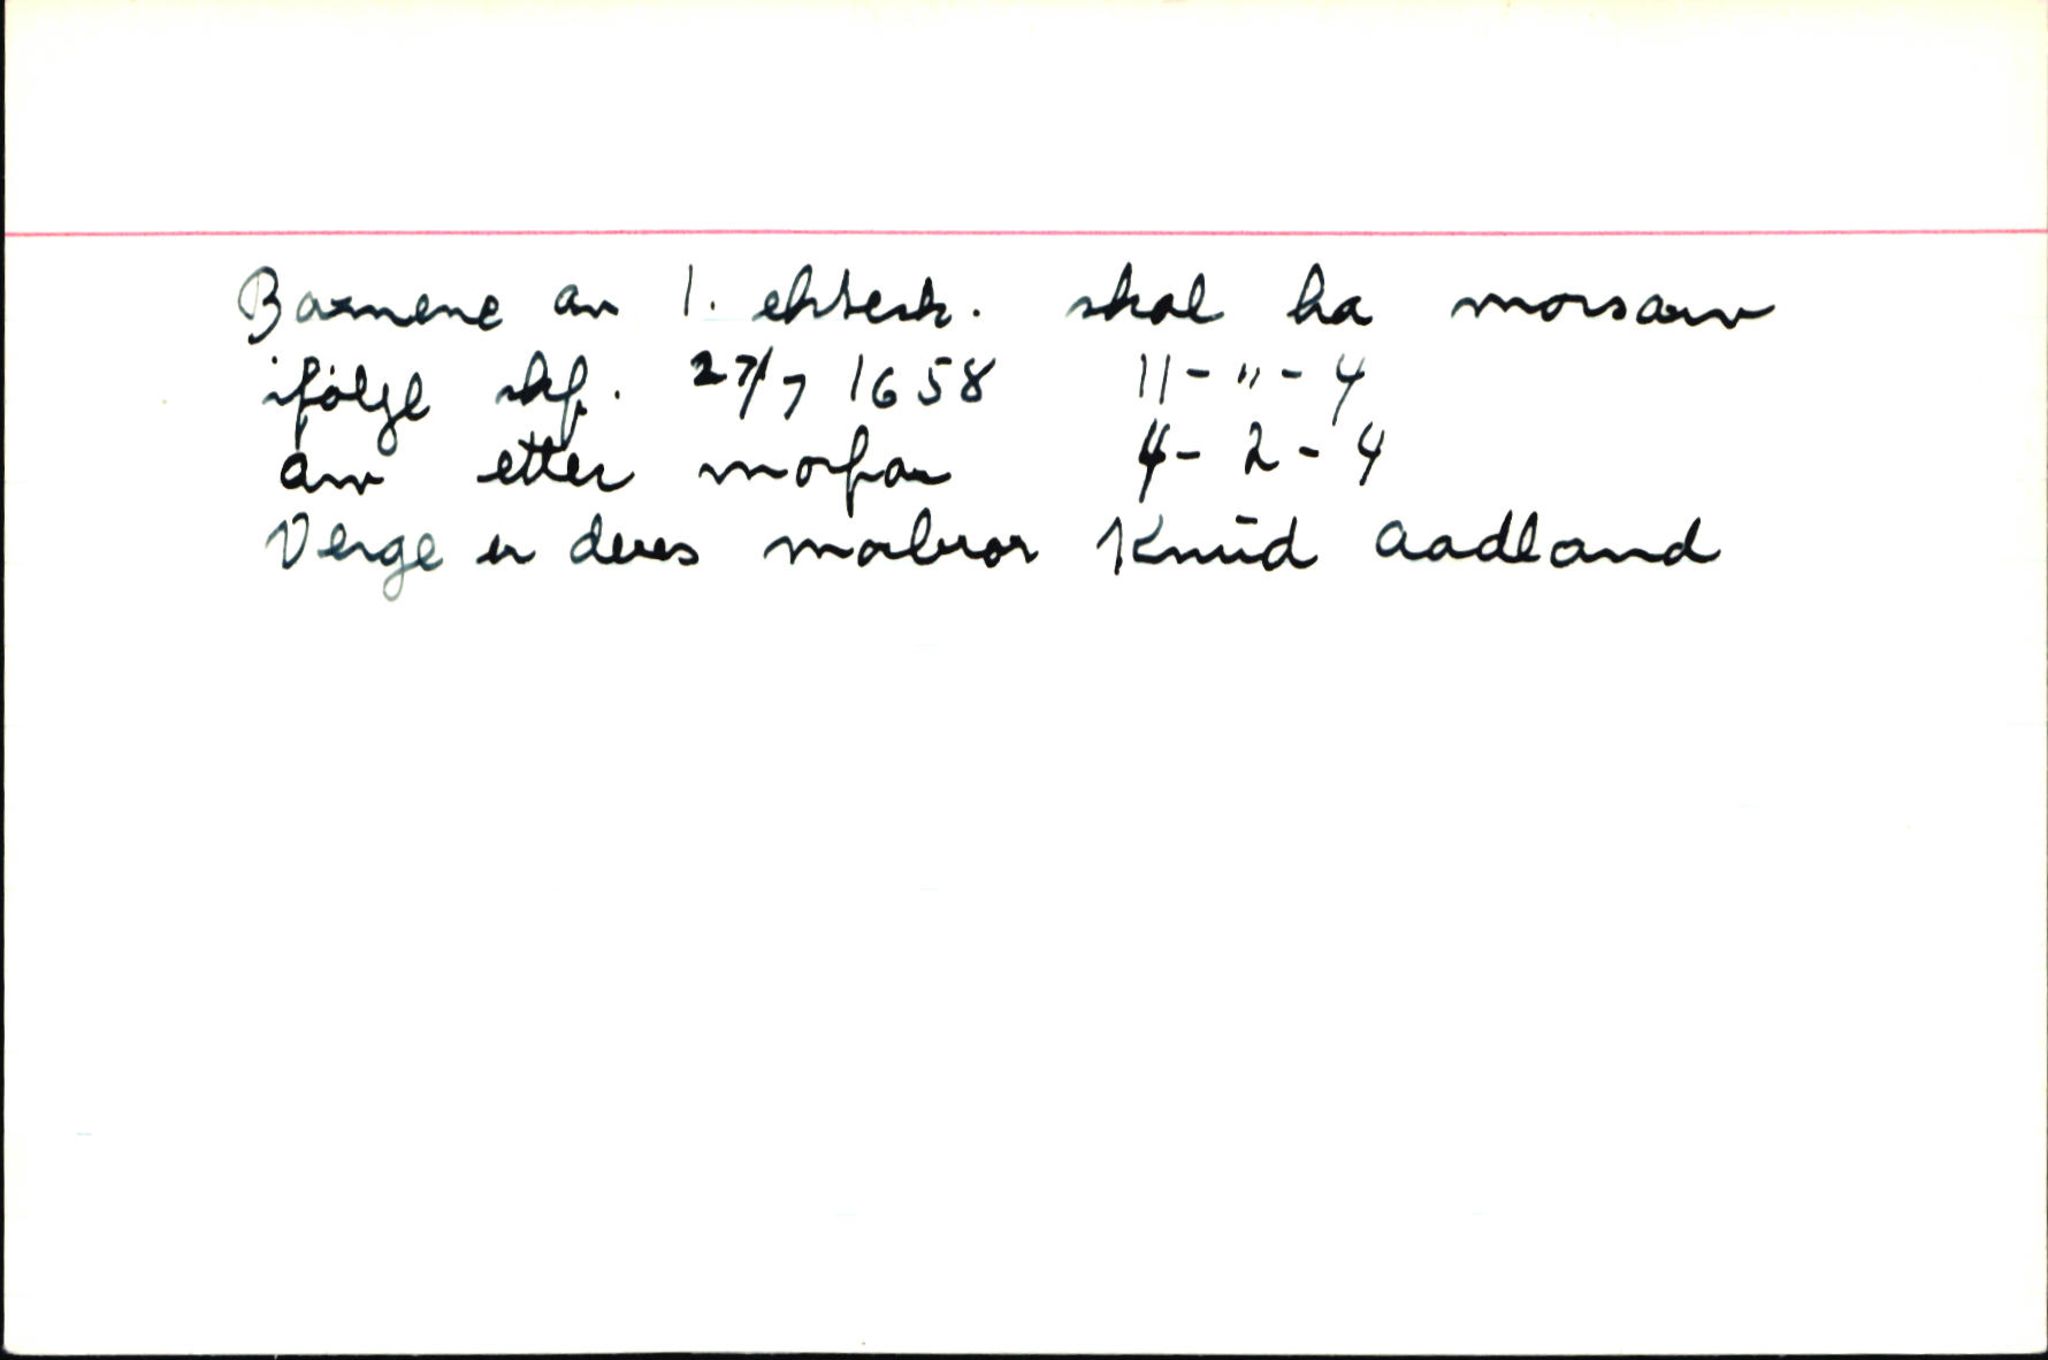 Barnene av 1. ektesk. skal ha morsarv
ifølge skf. 27/7 1658 11 - " - 4
arv etter morfar 4 - 2 - 4
Verge er deres morbror Knud Aadland